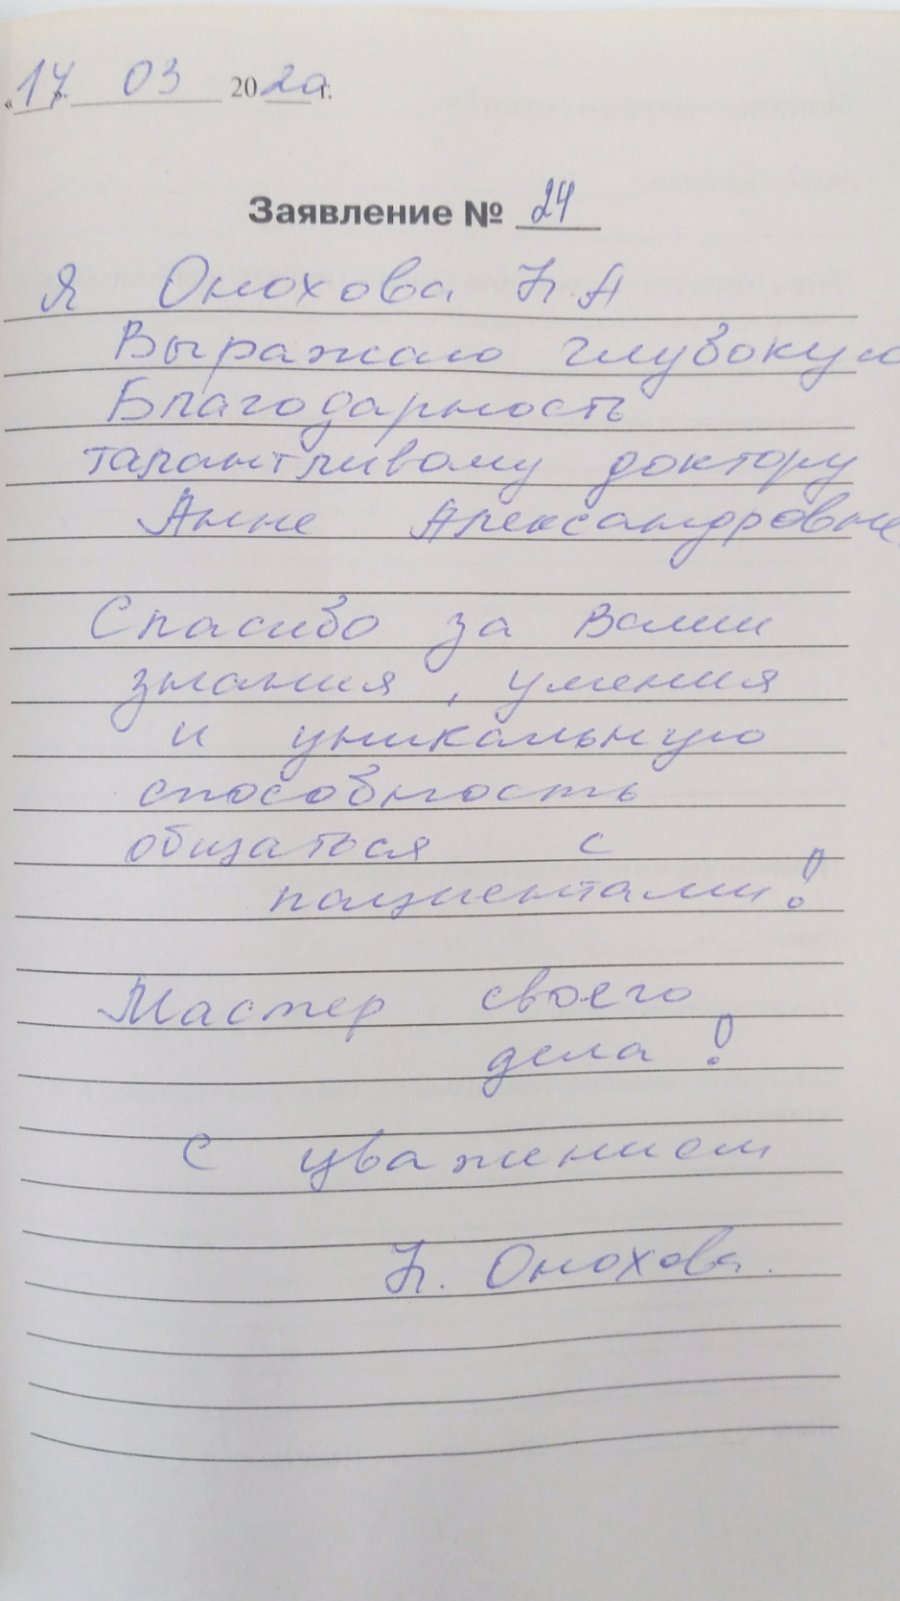 «17» 03 2020 г.
Заявление № 24
Я Онохова Н.А
Выражаю глубокую
Благодарность
талантливому доктору
Анне Александровне.
Спасибо за Ваши
знания, умения
и уникальную
способность
общаться с
пациентами!
Мастер своего
дела!
С уважением
Н. Онохова.